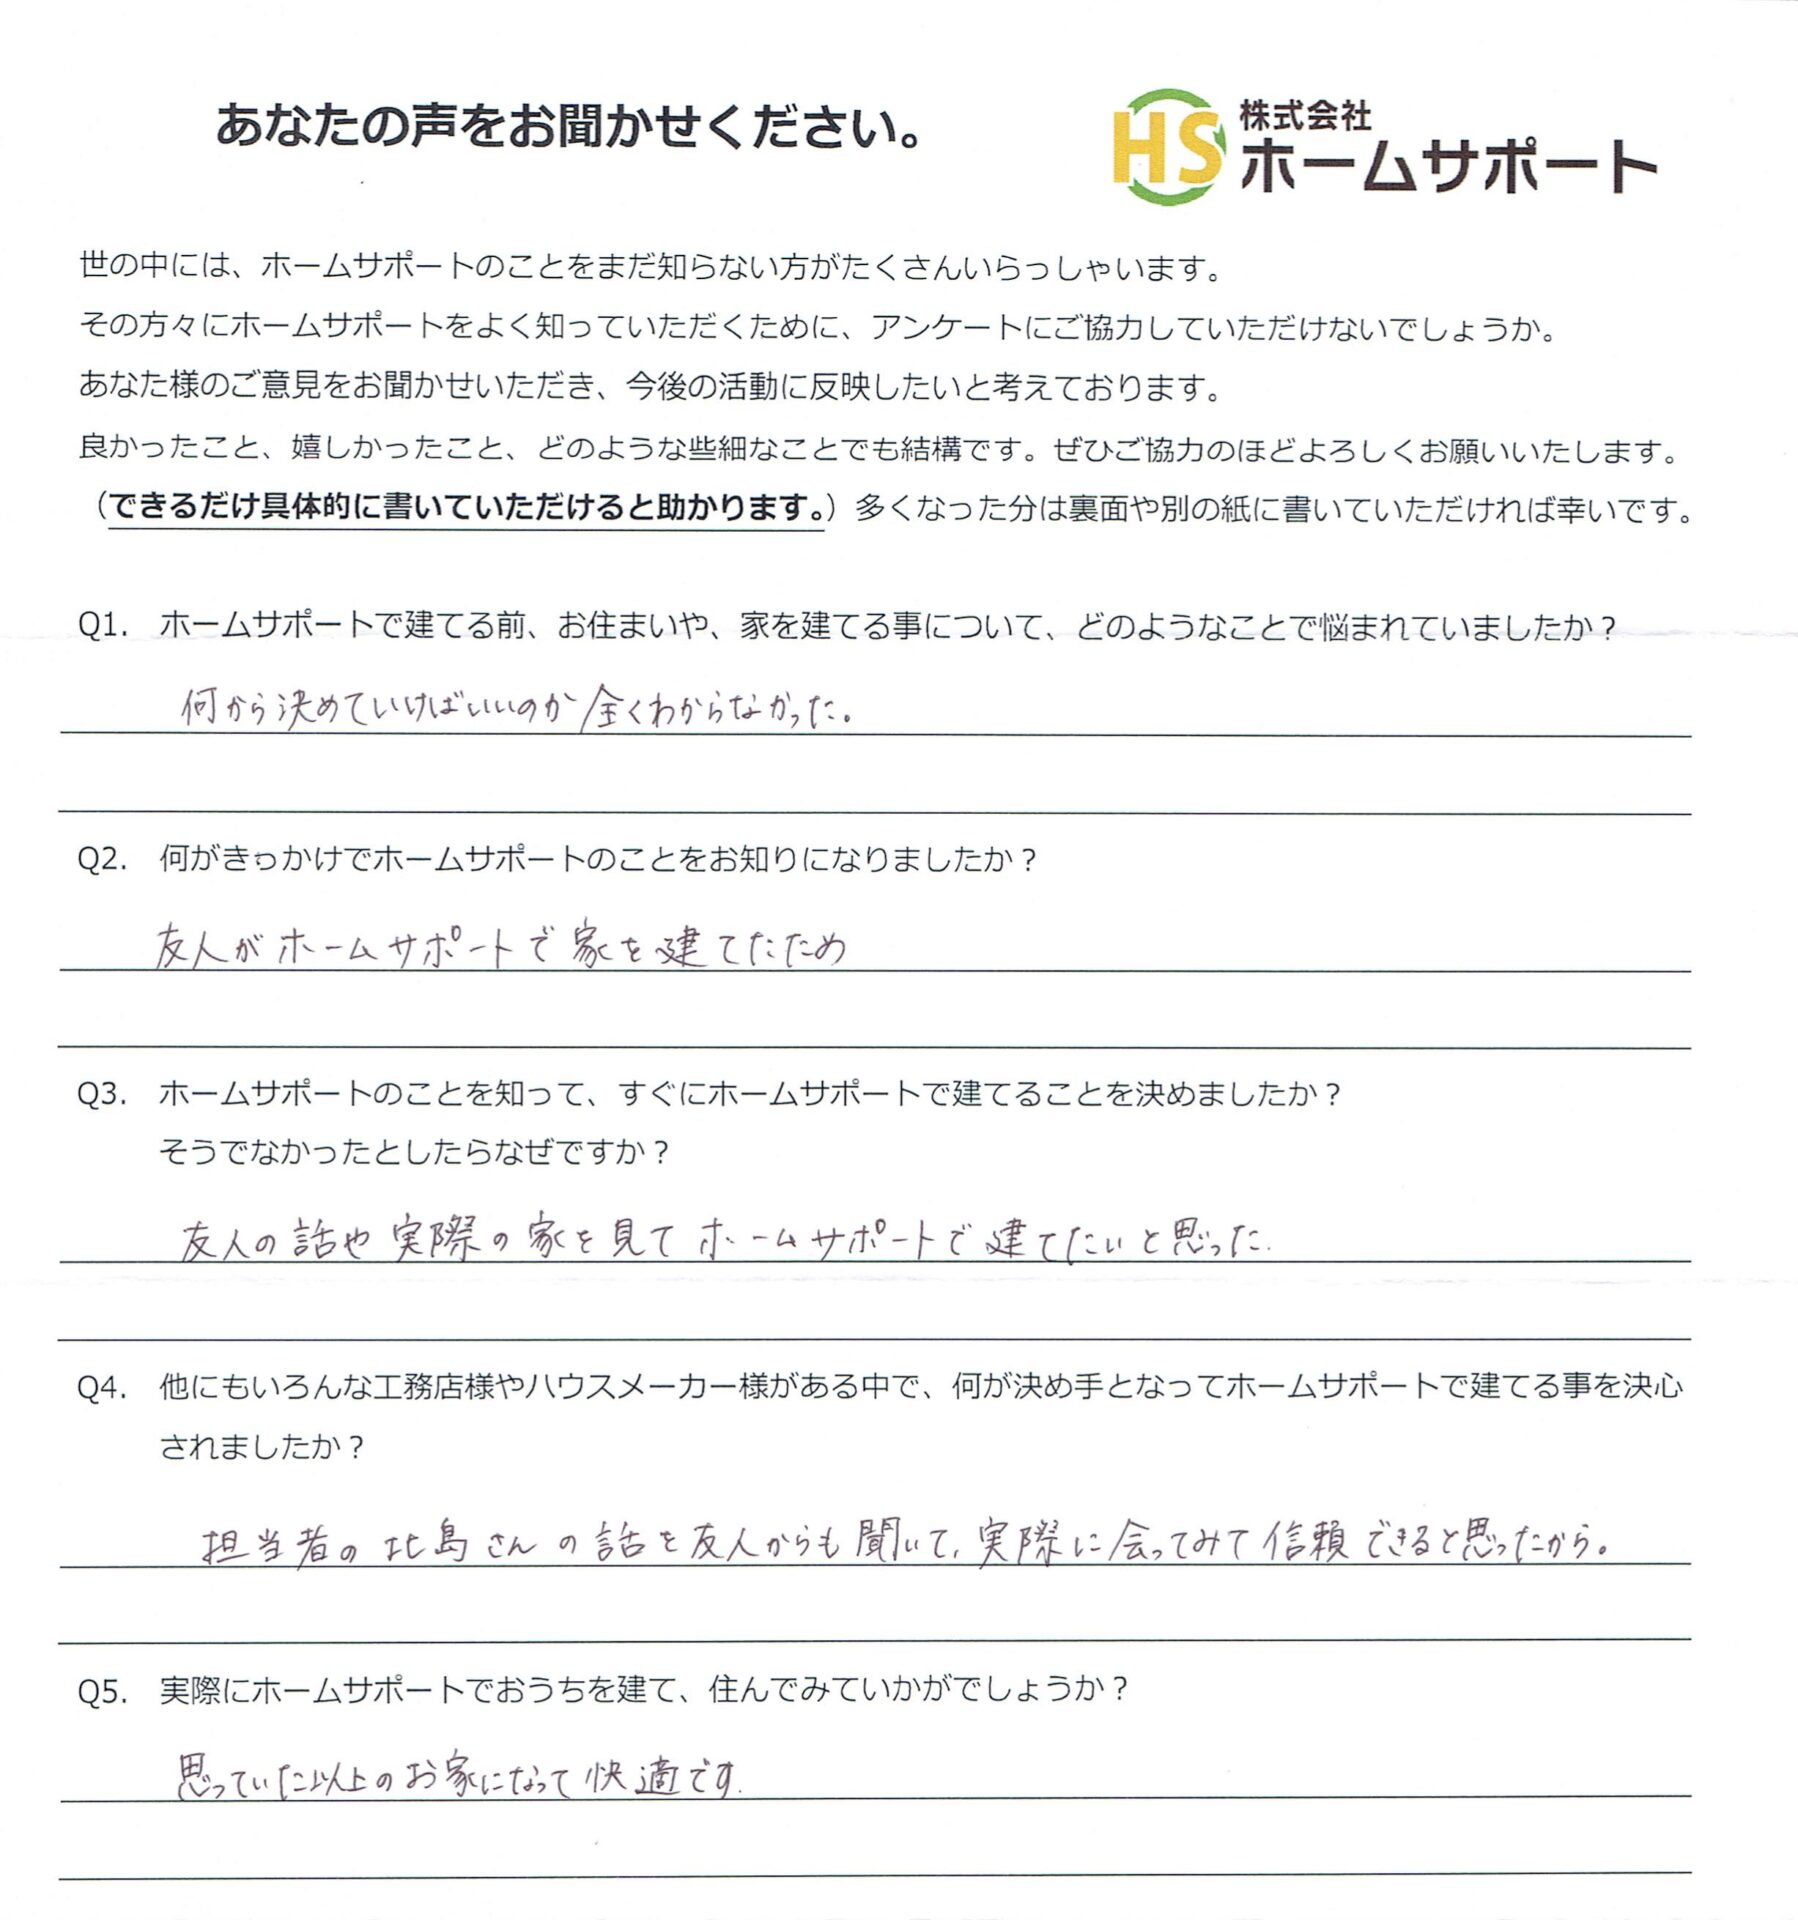 あなたの声をお聞かせください。
HS 株式会社
ホームサポート
世の中には、ホームサポートのことをまだ知らない方がたくさんいらっしゃいます。
その方々にホームサポートをよく知っていただくために、アンケートにご協力していただけないでしょうか。
あなた様のご意見をお聞かせいただき、今後の活動に反映したいと考えております。
良かったこと、嬉しかったこと、どのような些細なことでも結構です。ぜひご協力のほどよろしくお願いいたします。
（できるだけ具体的に書いていただけると助かります。）多くなった分は裏面や別の紙に書いていただければ幸いです。
Q1. ホームサポートで建てる前、お住まいや、家を建てる事について、どのようなことで悩まれていましたか？
何から決めていけばいいのか全くわからなかった。
Q2. 何がきっかけでホームサポートのことをお知りになりましたか？
友人がホームサポートで家を建てたため
Q3. ホームサポートのことを知って、すぐにホームサポートで建てることを決めましたか？
そうでなかったとしたらなぜですか？
友人の話や実際の家を見てホームサポートで建てたいと思った.
Q4. 他にもいろんな工務店様やハウスメーカー様がある中で、何が決め手となってホームサポートで建てる事を決心
されましたか？
担当者の北島さんの話を友人からも聞いて、実際に会ってみて信頼できると思ったから。
Q5. 実際にホームサポートでおうちを建て、住んでみていかがでしょうか？
思っていた以上のお家になって快適です.